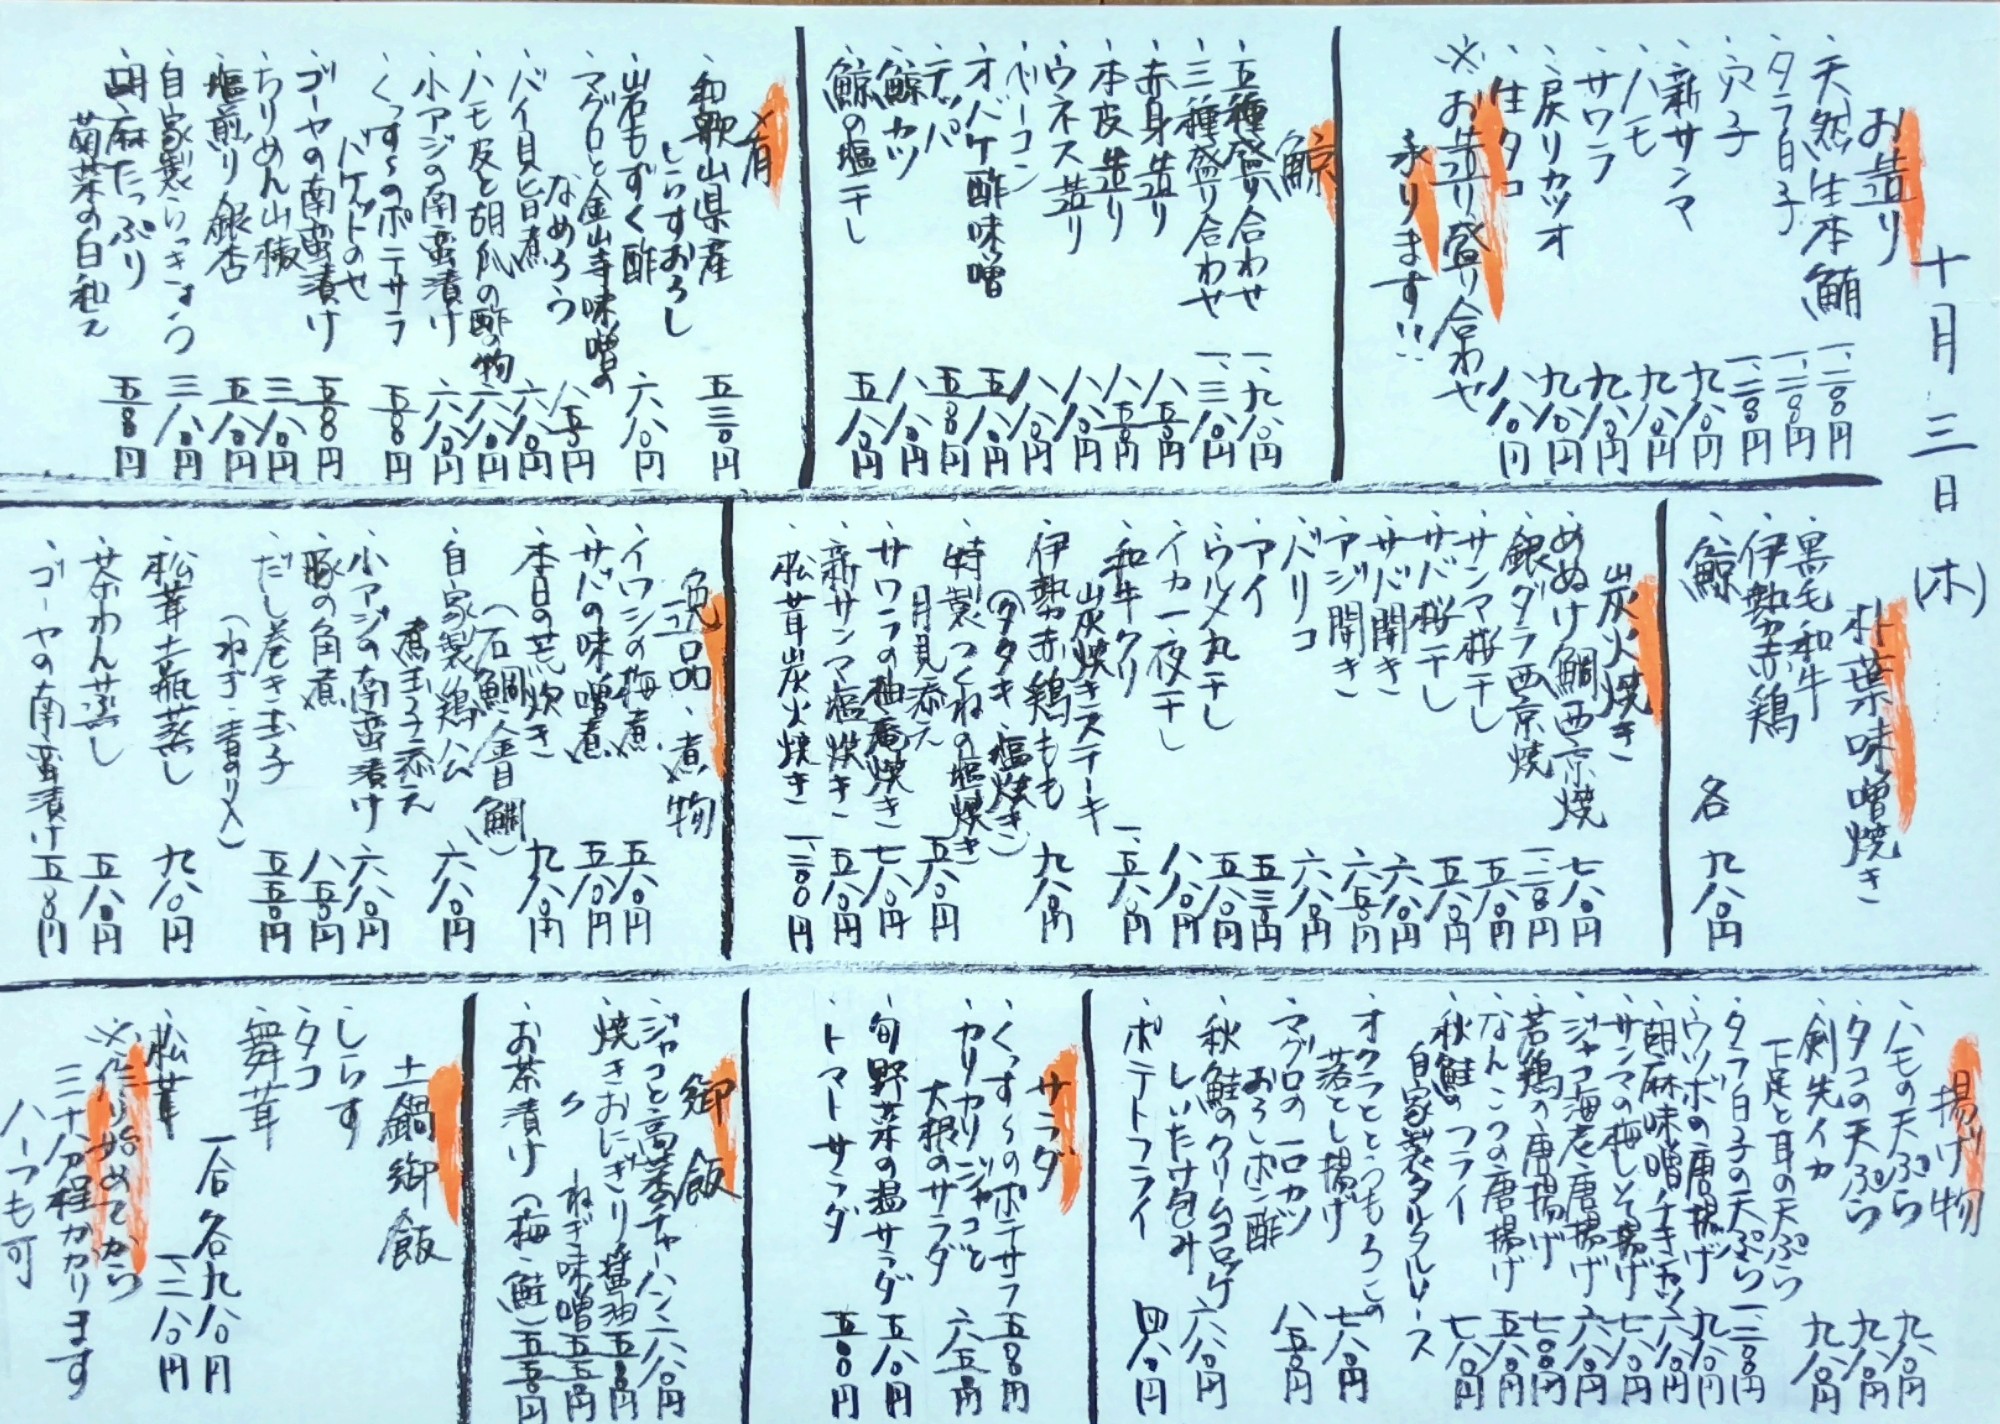 十月三日(木)
お造り
、天然生本鮪 一、二〇〇円
、タラ白子 一、二〇〇円
、穴子 一、二〇〇円
、新サンマ 九八〇円
、ハモ 九八〇円
、サワラ 九八〇円
、戻りカツオ 九八〇円
、生タコ 八八〇円
※お造り盛り合わせ
承ります!!
鯨
、五種盛り合わせ 一、九八〇円
、三種盛り合わせ 一、三八〇円
、赤身造り 八五〇円
、本皮造り 八五〇円
、ウネス造り 八八〇円
、ベーコン 八八〇円
、オバケ酢味噌 五八〇円
、テッパ 五五〇円
、鯨カツ 八八〇円
、鯨の塩干し 五八〇円
、和歌山県産
しらすおろし 五三〇円
、岩もずく酢 六八〇円
、マグロと金山寺味噌の
なめろう 八五〇円
、バイ貝旨煮 六八〇円
、ハモ皮と胡瓜の酢の物 六八〇円
、小アジの南蛮漬け 六八〇円
、くっすーのポテサラ
バケットのせ 五五〇円
、ゴーヤの南蛮漬け 五五〇円
、ちりめん山椒 三八〇円
、塩煎り銀杏 五八〇円
、自家製らっきょう 三八〇円
、胡麻たっぷり
菊菜の白和え 五五〇円
朴葉味噌焼き
、黒毛和牛
、伊勢赤鶏
、鯨 各 九八〇円
炭火焼き
、めぬけ鯛西京焼 七八〇円
、銀ダラ西京焼 一、二〇〇円
、サンマ桜干し 五八〇円
、サバ桜干し 五八〇円
、サバ開き 六八〇円
、アジ開き 六五〇円
、バリコ 六八〇円
、アイ 五三〇円
、ウルメ丸干し 五八〇円
、イカ一夜干し 八八〇円
、和牛クリ
炭焼きステーキ 一、五八〇円
、伊勢赤鶏もも
(タタキ、塩焼き) 九八〇円
、特製つくねの塩焼き
月見添え 五八〇円
、サワラの柚庵焼き 七八〇円
、新サンマ塩焼き 五八〇円
、松茸炭火焼き 一、二〇〇円
逸品・煮物
、イワシの梅煮 五八〇円
、サバの味噌煮 五八〇円
、本日の荒炊き
(石鯛、金目鯛) 九八〇円
、自家製鶏ハム
煮玉子添え 六八〇円
、小アジの南蛮漬け 六八〇円
、豚の角煮 八五〇円
、だし巻き玉子
(ねぎ・青のり入) 五五〇円
、松茸土瓶蒸し 九八〇円
、茶わん蒸し 五八〇円
、ゴーヤの南蛮漬け 五五〇円
揚げ物
、ハモの天ぷら 九八〇円
、タコの天ぷら 九八〇円
、剣先イカ
下足と耳の天ぷら 九八〇円
、タラ白子の天ぷら 一、二〇〇円
、ウツボの唐揚げ 九八〇円
、胡麻味噌チキンカツ 八八〇円
、サンマの梅しそ揚げ 七八〇円
、ジャコ海老唐揚げ 六八〇円
、若鶏の唐揚げ 七〇〇円
、なんこつの唐揚げ 五八〇円
、秋鮭のフライ
自家製タルタルソース 七八〇円
、オクラととうもろこしの
落とし揚げ 七八〇円
、マグロの一口カツ
おろしポン酢 八五〇円
、秋鮭のクリームコロッケ
しいたけ包み 六八〇円
、ポテトフライ 四八〇円
サラダ
、くっすーのポテサラ 五五〇円
、カリカリジャコと
大根のサラダ 六五〇円
、旬野菜の温サラダ 五八〇円
、トマトサラダ 五五〇円
御飯
、ジャコと高菜のチャーハン 八八〇円
、焼きおにぎり、醤油 五五〇円
〃 ねぎ味噌 五五〇円
、お茶漬け(梅、鮭) 五五〇円
土鍋御飯
、しらす
、タコ
、舞茸
一合各九八〇円
、松茸 一、三八〇円
※作り始めてから
三十分程かかります
ハーフも可